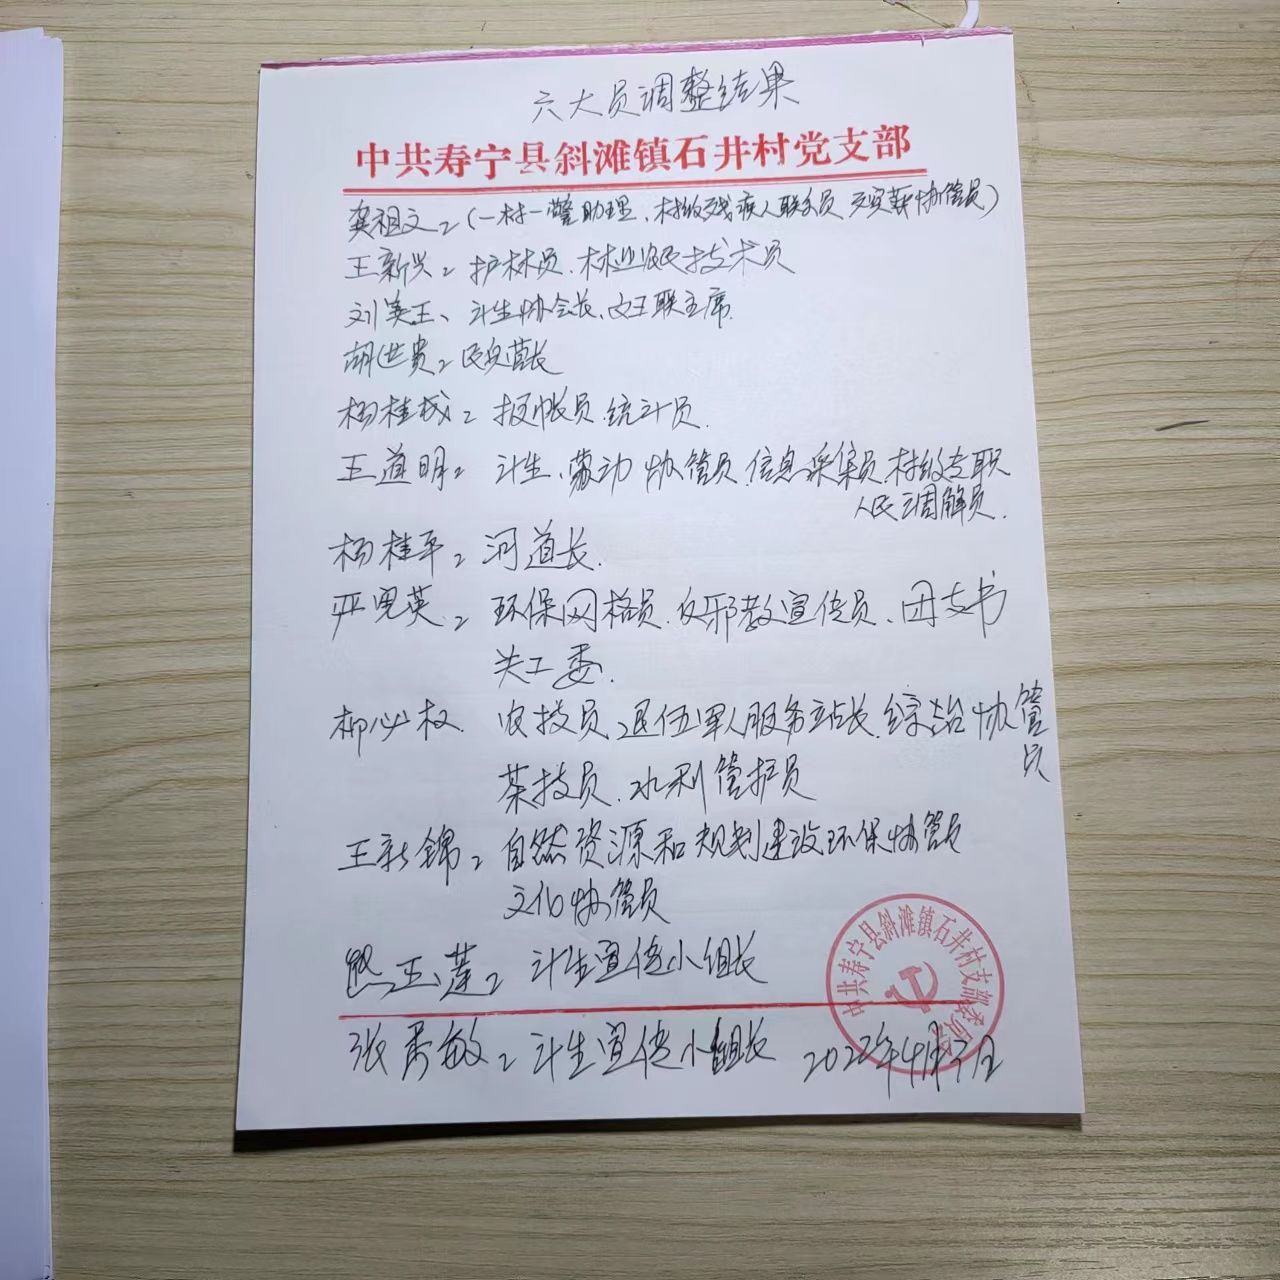 六大员调整结果
中共寿宁县斜滩镇石井村党支部
龚祖文：(一村一警助理、村级残疾人联系员 灾害协管员)
王新兴：护林员、林业农民技术员
刘美玉、计生协会长、妇联主席.
胡世贵：民兵营长
杨桂成：报帐员.统计员.
王道明：计生、劳动协管员.信息采集员.村级专职
人民调解员.
杨桂平：河道长.
严思英：环保网格员.反邪教宣传员、团支书
关工委.
柳必权 农技员、退伍军人服务站长.综治协管
员
茶技员.水利管护员
王新锦：自然资源和规划建设环保协管员
文化协管员
熊玉莲：计生宣传小组长
张秀敏：计生宣传小组长
2022年4月7日
中共寿宁县斜滩镇石井村支部委员会